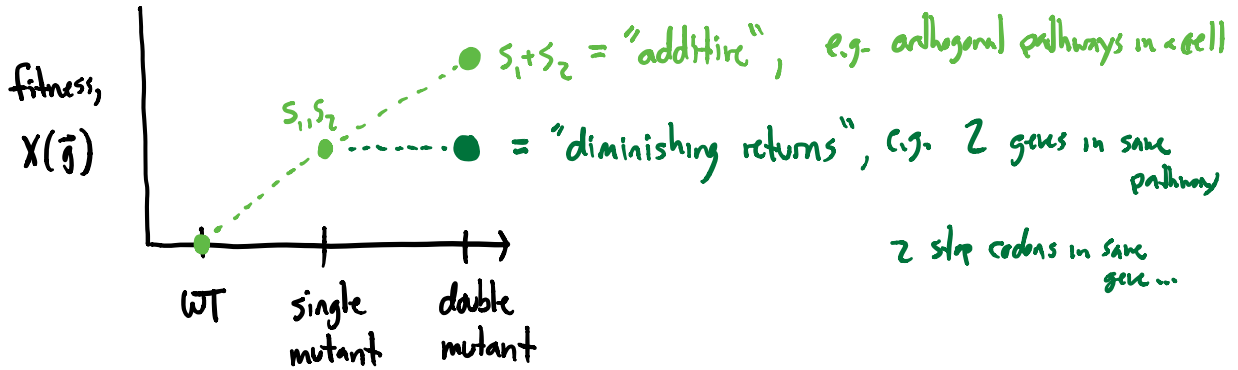 fitness,
X(g⃗)
s₁,s₂
s₁+s₂ = "additive", e.g. orthogonal pathways in a cell
= "diminishing returns", e.g. 2 genes in same
pathway
2 stop codons in same
gene...
WT
single
mutant
double
mutant